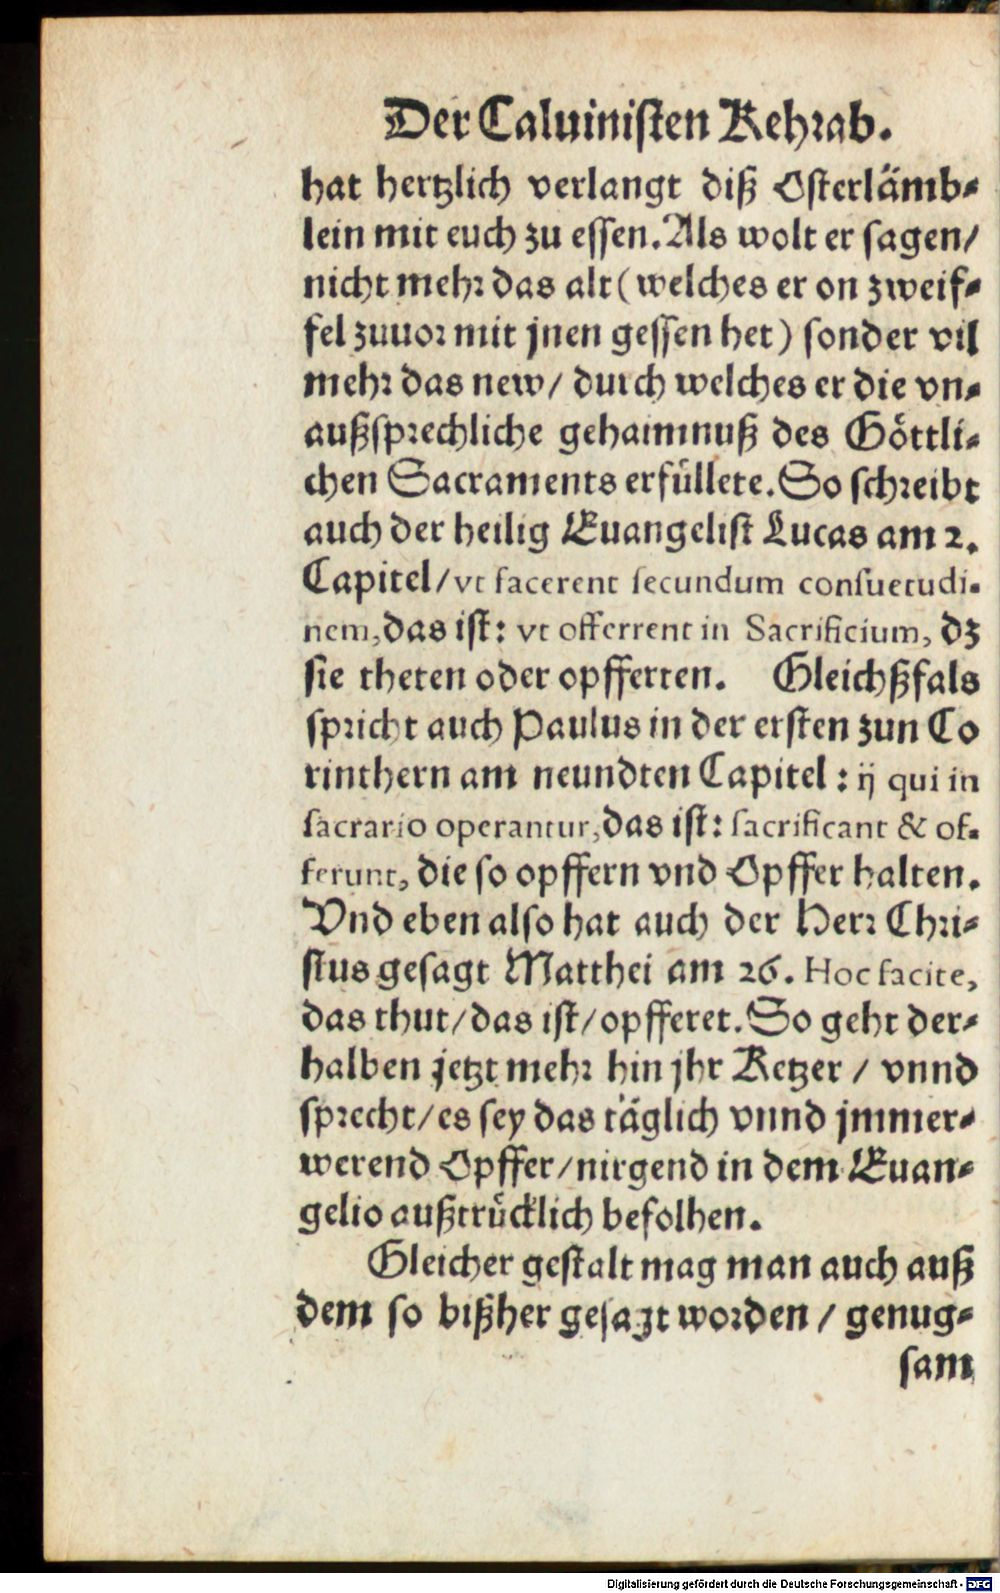 Der Caluinisten Kehrab.
hat hertzlich verlangt diß Osterlämb-
lein mit euch zu essen. Als wolt er sagen/
nicht mehr das alt (welches er on zweif-
fel zuuor mit jnen gessen het) sonder vil
mehr das new/ durch welches er die vn-
außsprechliche gehaimnuß des Göttli-
chen Sacraments erfüllete. So schreibt
auch der heilig Euangelist Lucas am 2.
Capitel/ vt facerent secundum consuetudi-
nem, das ist: vt offerrent in Sacrificium, dz
sie theten oder opfferten. Gleichßfals
spricht auch Paulus in der ersten zun Co
rinthern am neundten Capitel: ij qui in
sacrario operantur, das ist: sacrificant & of-
ferunt, die so opffern vnd Opffer halten.
Vnd eben also hat auch der Herr Chri-
stus gesagt Matthei am 26. Hoc facite,
das thut/ das ist/ opfferet. So geht der-
halben jetzt mehr hin jhr Ketzer / vnnd
sprecht/ es sey das täglich vnnd jmmer-
werend Opffer/ nirgend in dem Euan-
gelio außtrücklich befolhen.
Gleicher gestalt mag man auch auß
dem so bißher gesagt worden / genug-
sam
Digitalisierung gefördert durch die Deutsche Forschungsgemeinschaft - DFG